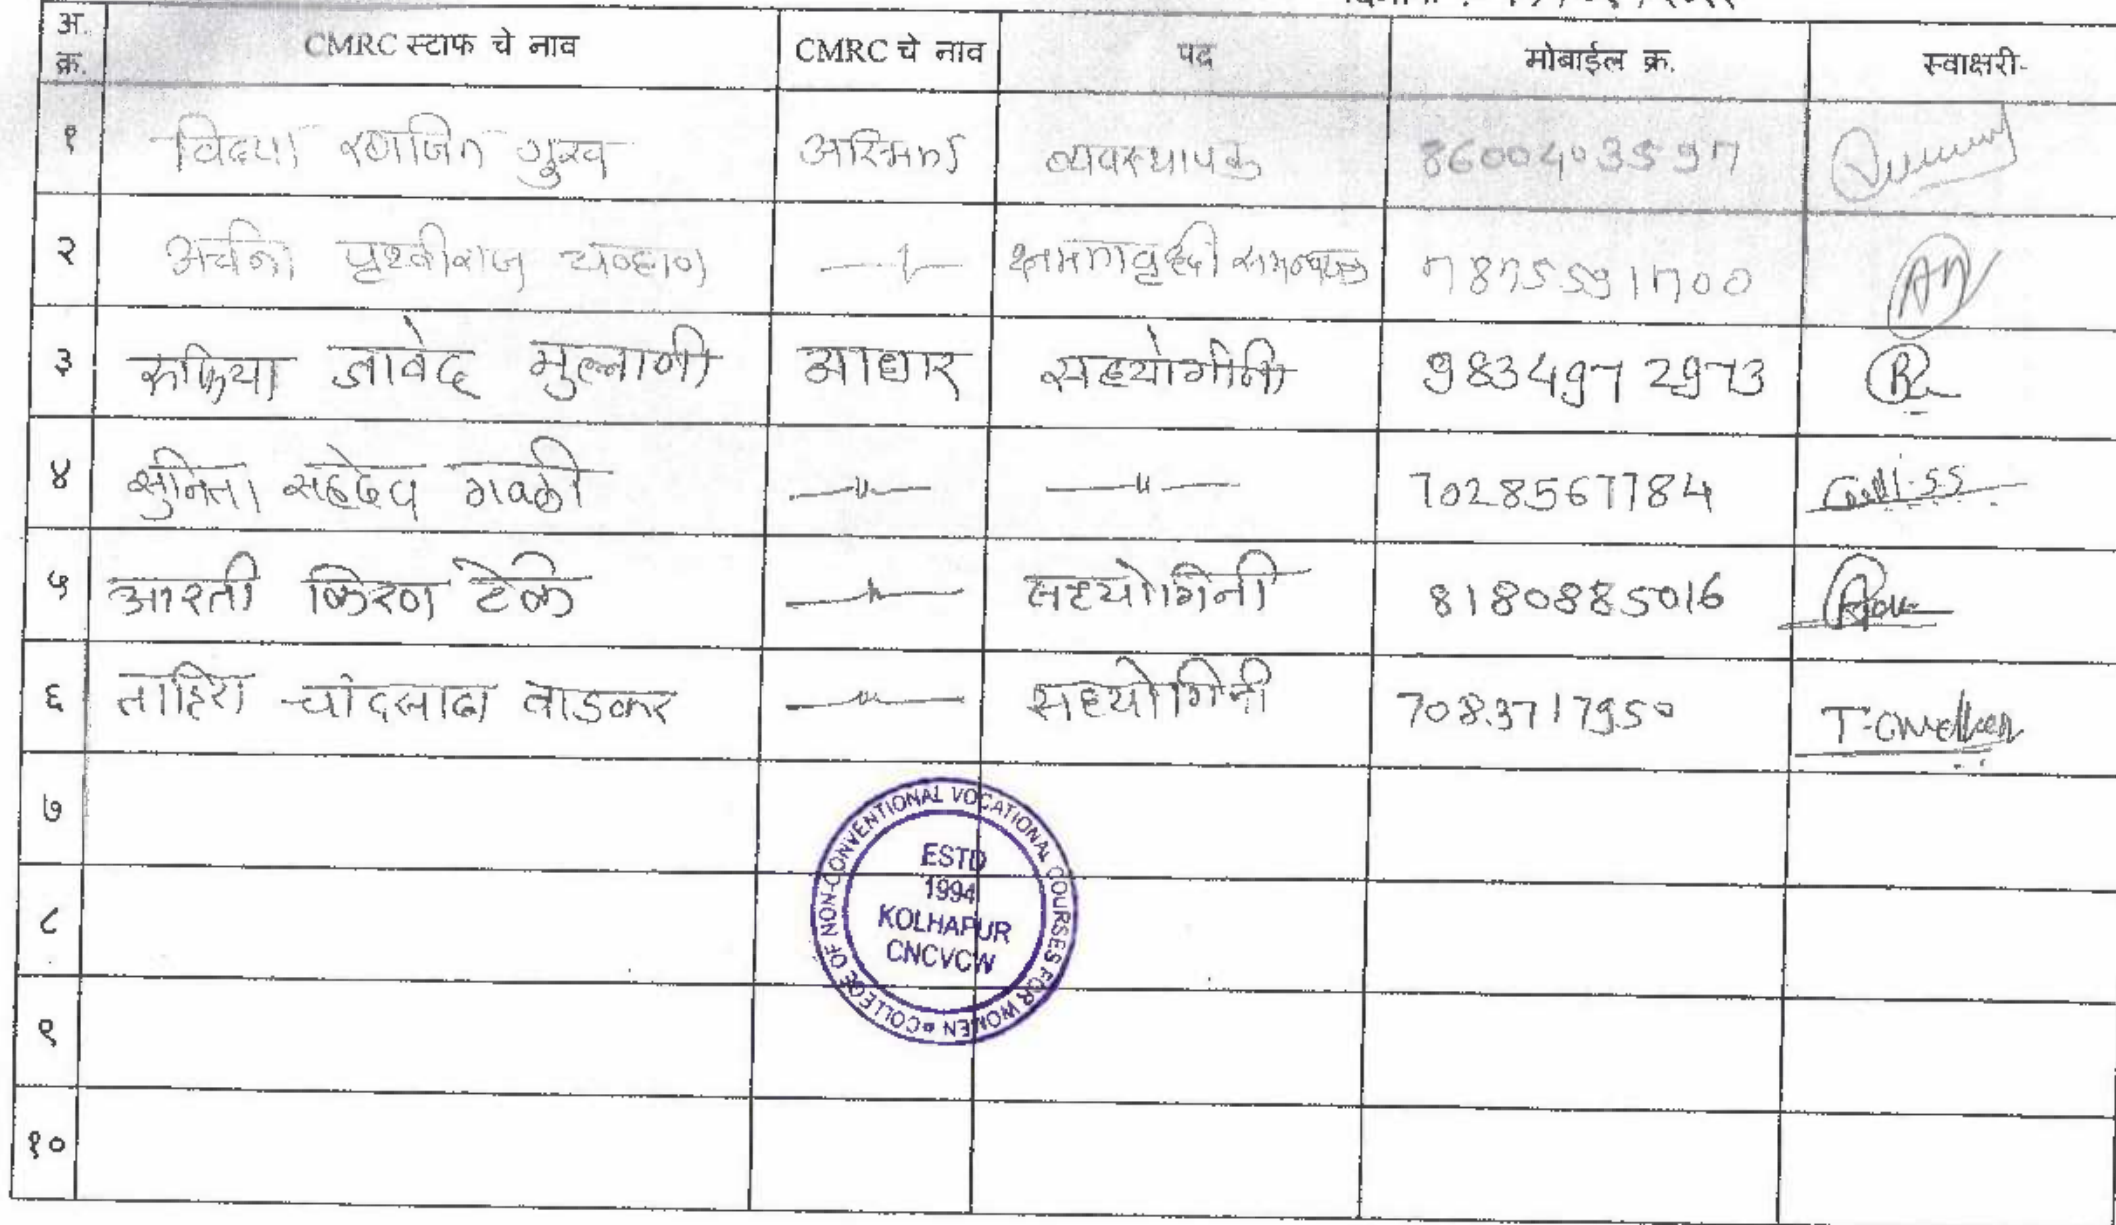 अ. क्र. CMRC स्टाफ चे नाव CMRC चे नाव पद मोबाईल क्र. स्वाक्षरी-
१ विद्या रणजित गुरव अस्मिता व्यवस्थापक 8600403597
२ अर्चना पृथ्वीराज चव्हाण —"— क्षमतावृद्धी समन्वयक 7875591700
३ रुकिया जावेद मुल्लाणी आधार सहयोगीनी 9834972973
४ सुनिता सहदेव गवळी —"— —"— 7028567784
५ आरती किरण टेके —"— सहयोगिनी 8180885016
६ ताहिरा चांदसाहेब वाडकर —"— सहयोगिनी 7083717950
७
८
९
१०
COLLEGE OF NON-CONVENTIONAL VOCATIONAL COURSES FOR WOMEN
ESTD
1994
KOLHAPUR
CNCVCW